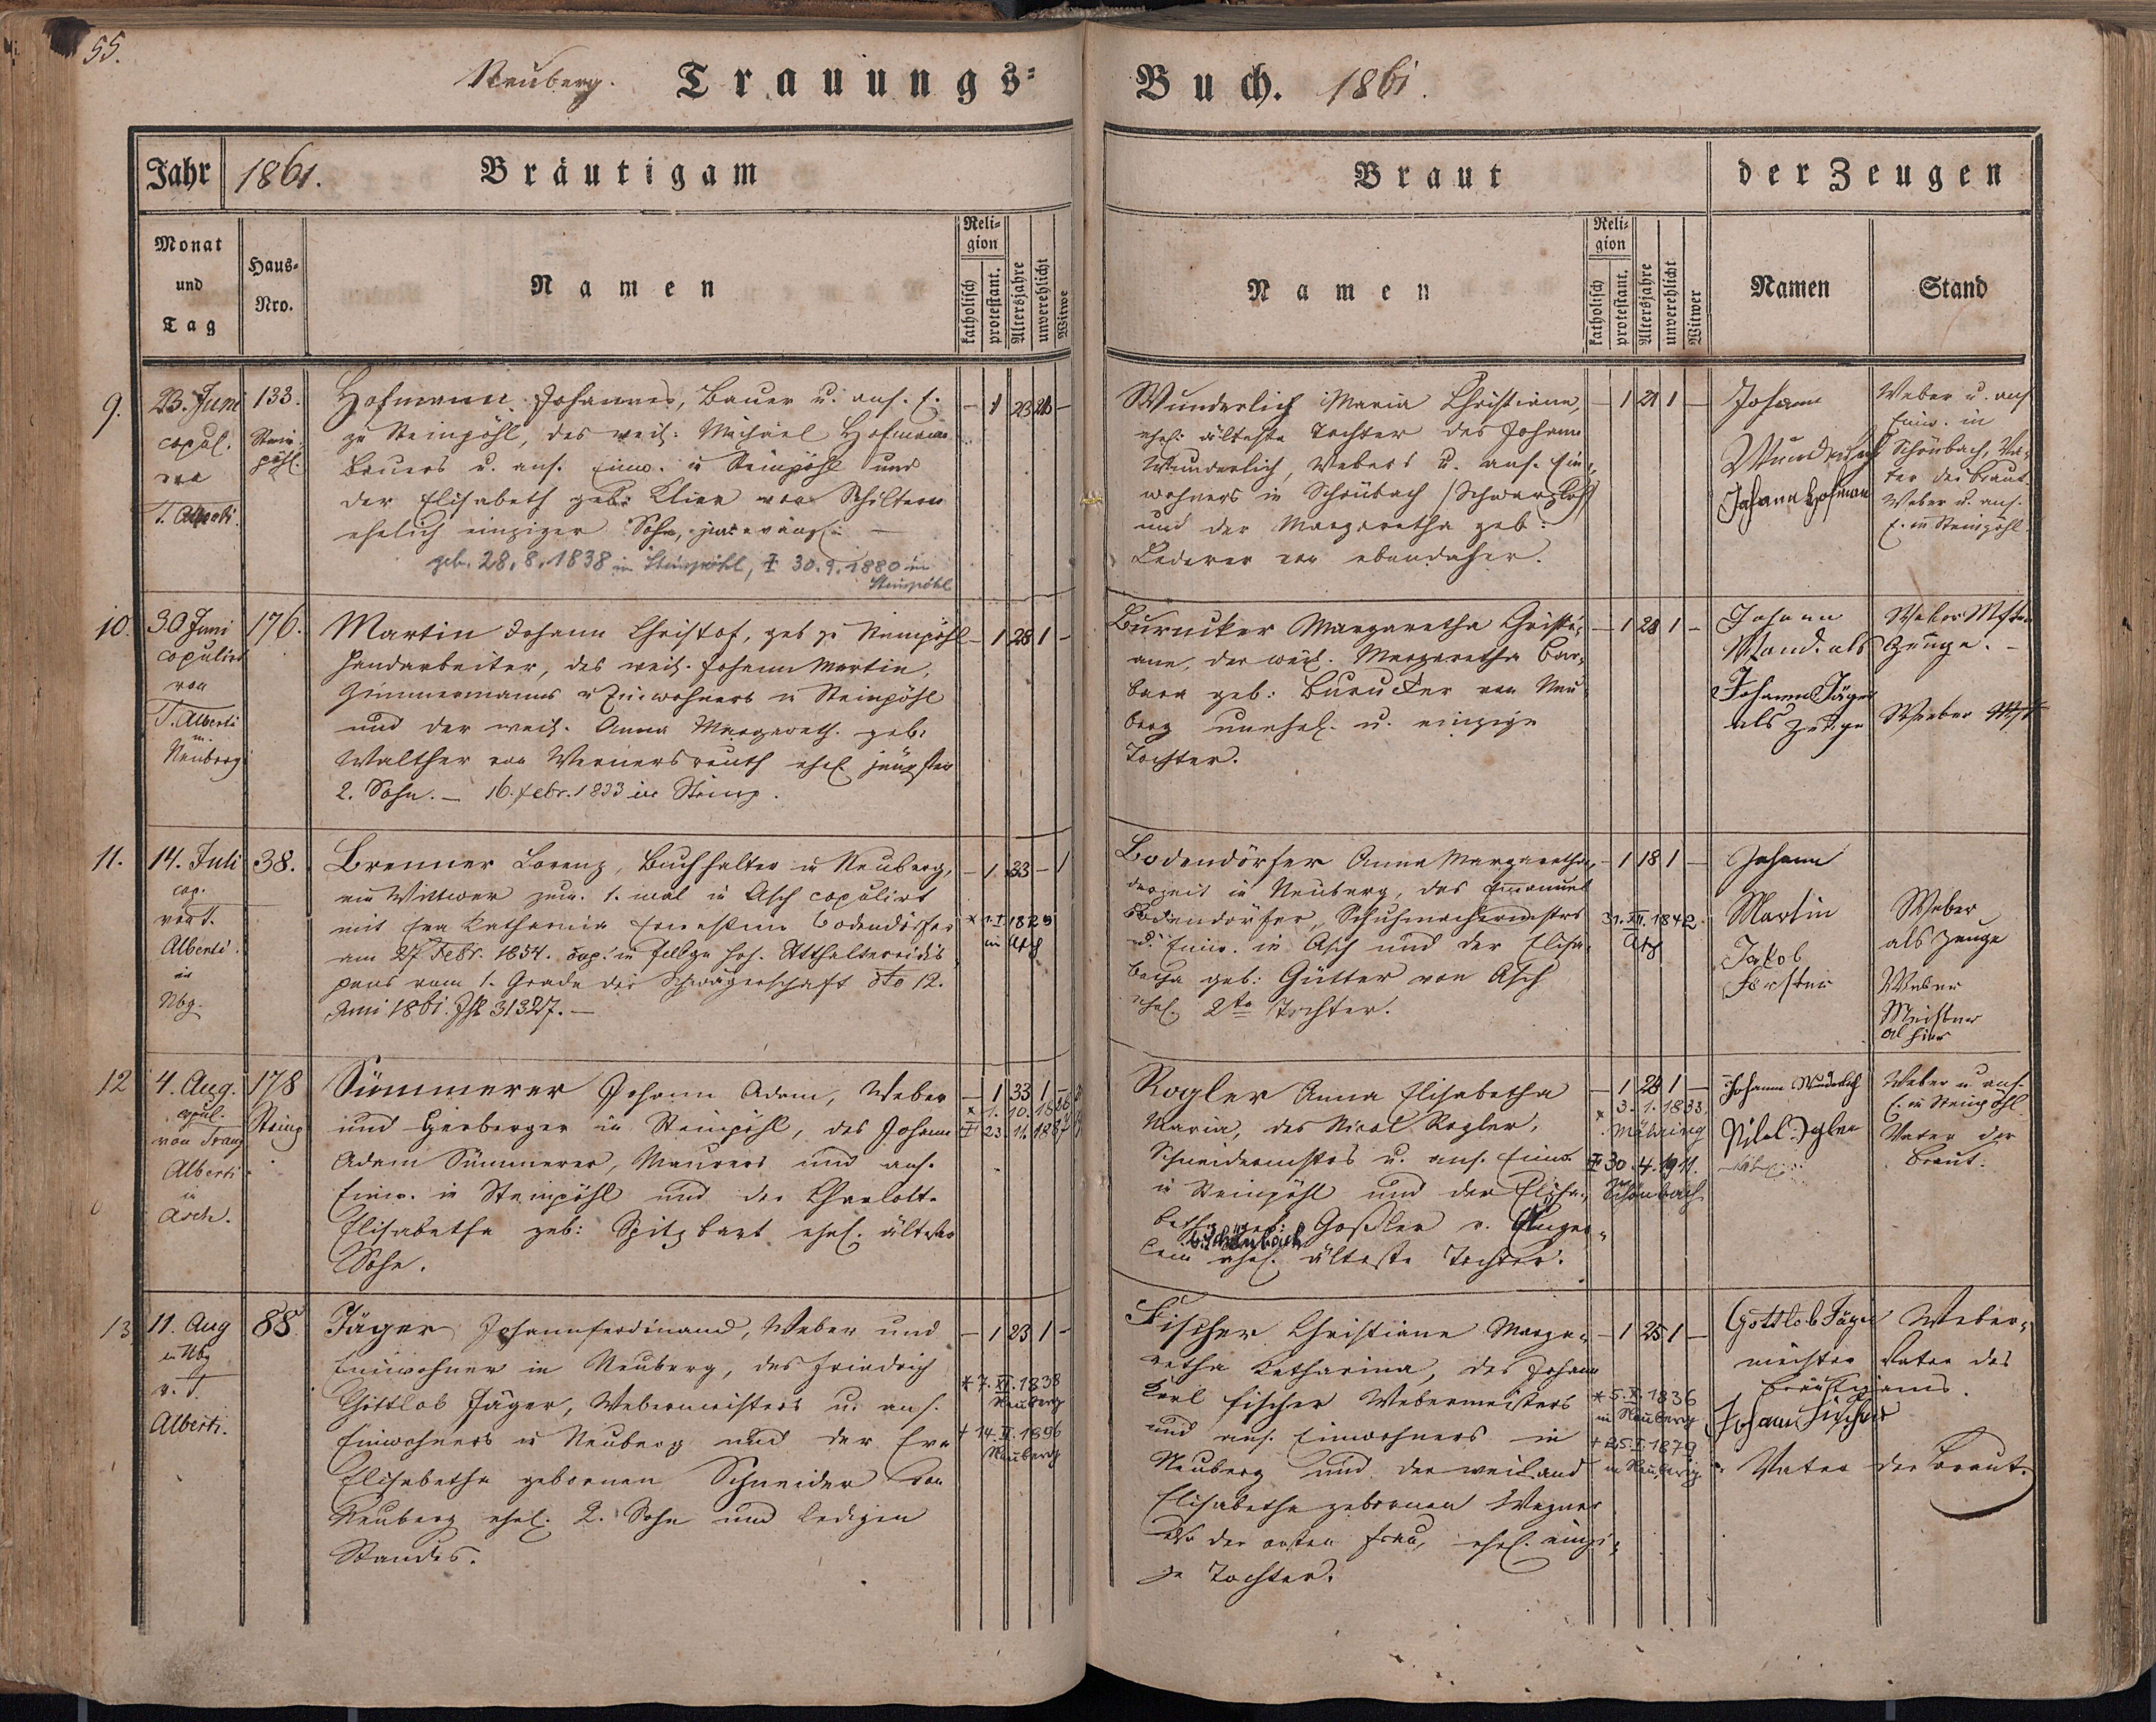 55.
Neuberg. Trauungs=
Buch. 1861.
Jahr 1861. Bräutigam
Braut
der Zeugen
Monat und Tag
Haus= Nro.
Namen
Reli= gion
katholisch
protestant.
Altersjahre
unverehlicht
Witwe
Namen
Reli= gion
katholisch
protestant.
Altersjahre
unverehlicht
Witwer
Namen
Stand
9. 23. Juni 133.
copul. Stein-
von pöhl.
T. Alberti.
Hofmann Johannes, Bauer u. ans. E.
zu Steinpöhl, des weil. Michael Hofmann
Bauers u. ans. Einw. in Steinpöhl und
der Elisabeth geb. Klier von Schiltern
ehelich einziger Sohn,
geb. 28.8.1838 in Steinpöhl, ‡ 30.9.1880 in
Steinpöhl
Wunderlich Maria Christiana, — 1 21 1 —
ehel. älteste Tochter des Johann
Wunderlich, Webers u. ans. Ein-
wohners in Schönbach (Schwarzloh)
und der Margaretha geb:
Lederer von ebendaher.
Johann
Wunderlich
Johann Hofmann
Weber u. ans.
Einw. in
Schönbach, Va-
ter der Braut.
Weber u. ans.
E. in Steinpöhl
10. 30 Juni 176.
copulirt
von
T. Alberti
in
Neuberg
Martin Johann Christof, geb. zu Steinpöhl — 1 28 1 —
Handarbeiter, des weil. Johann Martin,
Zimmermanns u. Einwohners in Steinpöhl
und der weil. Anna Margareth. geb:
Walther von Wernersreuth ehel. jüngster
2. Sohn. — 16. febr. 1833 in Steinp.
Burucker Margaretha Christi- — 1 28 1 —
ane, der weil. Margaretha Bar-
bara geb: Burucker von Neu-
berg unehel. u. einzige
Tochter.
Johann
Wand. als Zeuge. —
Johann Jäger
als Zeuge
Weber Mstr.
Weber Mst
11. 14. Juli 38.
cop.
von T.
Alberti
in
Nbg.
Brenner Lorenz, Buchhalter in Neuberg, — 1. 33 — 1
ein Wittwer zum 1. mal in Asch copulirt
mit Eva Katharina Ernestine Bodendörfer
am 27. Febr. 1854. dup. in folge hoh. Statthaltereidis-
pens vom 1. Grade der Schwägerschaft dto 12.
Juni 1861. Zhl 31327. —
* 1. I. 1828
in Asch
Bodendörfer Anna Margaretha, — 1 18 1 —
derzeit in Neuberg, des Emanuel
Bodendörfer, Schuhmachermstrs
u. Einw. in Asch und der Elisa-
betha geb: Gütter von Asch
ehel. 2te Tochter.
31. XII. 1842.
Asch
Johann
Martin
Jakob
Förster
Weber
als Zeuge
Weber
Meister
alhier
12 4. Aug. 178
copul. Steinp
von Traug
Alberti
in
Asch.
Sümmerer Johann Adam, Weber — 1 33 1
und Herberger in Steinpöhl, des Johann
Adam Sümmerer, Maurers und ans.
Einw. in Steinpöhl und der Charlott-
Elisabetha geb: Spitzbart ehel. ältester
Sohn.
Rogler Anna Elisabetha — 1 28 1 —
Maria, des Nicol Rogler,
Schneidermstrs u. ans. Einw.
in Steinpöhl und der Elisa-
betha geb: Goßler v.
b. Schönbach
ehel. älteste Tochter.
* 3. 1. 1833.
Mähring
‡ 30. 4. 1911.
Schönbach
Johann Wunderlich
Weber u. ans.
E. in Steinpöhl
Vater der
Braut.
13 11. Aug 88.
in Nbg
v. T.
Alberti.
Jäger Johann ferdinand, Weber und — 1 23 1 —
Einwohner in Neuberg, des Friedrich
Gottlob Jäger, Webermeisters u. ans.
Einwohners in Neuberg und der Eva
Elisabetha gebornen Schneider von
Neuberg ehel. 2. Sohn und ledigen
Standes.
* 7. VI. 1838
Neuberg
† 14. V. 1896
Neuberg
Fischer Christiane Marga- — 1 25 1 —
retha Katharina, des Johann
Karl Fischer Webermeisters
und ans. Einwohners in
Neuberg und der weiland
Elisabetha gebornen Wagner
der ersten Frau, ehel. einzi-
ge Tochter.
* 5. X. 1836
in Neuberg
† 25. I. 1879
in Neuberg
Gottlob Jäger Weber-
meister Vater des
Bräutigams.
Johann Fischer
Vater der Braut.